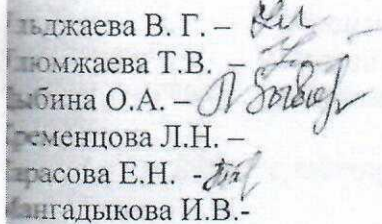 льджаева В. Г. –
люмжаева Т.В. –
ыбина О.А. –
ременцова Л.Н. –
арасова Е.Н. -
ангадыкова И.В.-